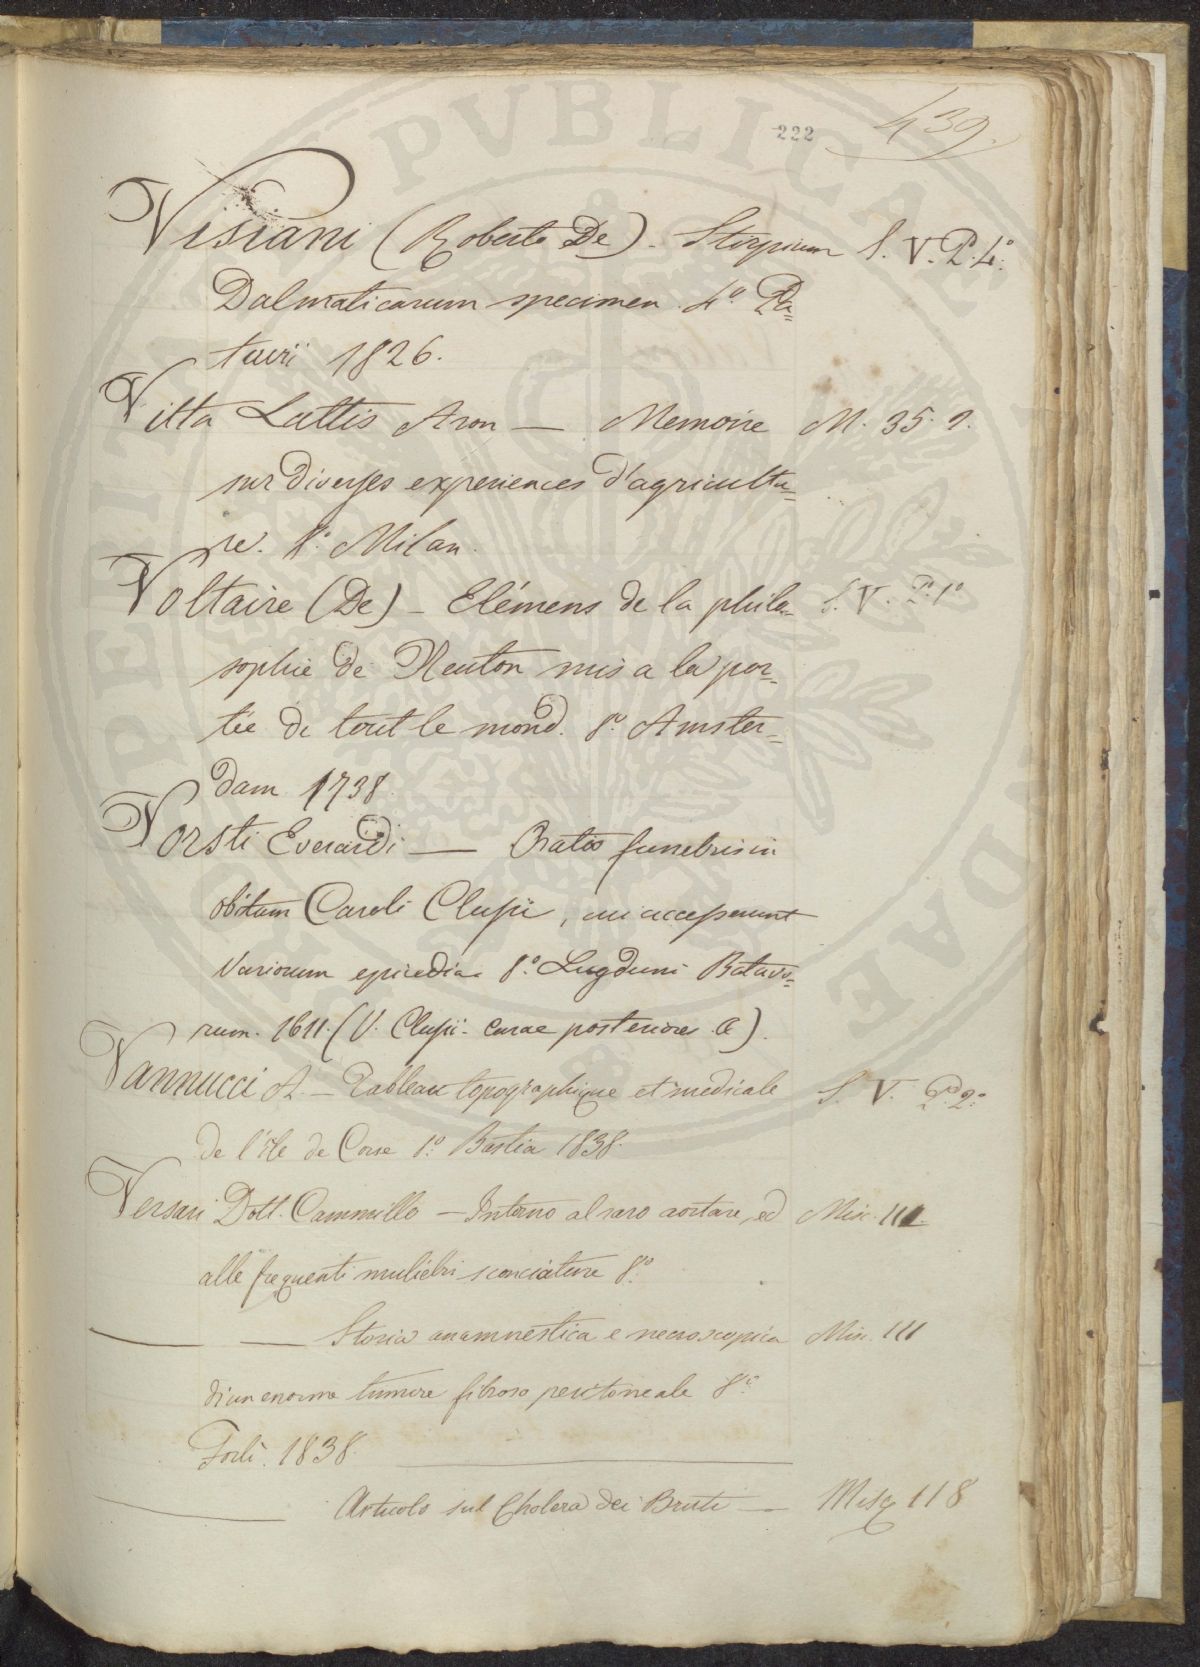 222 439.
Visiani (Roberto De) - Stirpium S. V. P. 4.º
Dalmaticarum specimen. 4.º Pa=
tavii 1826.
Vitta Lattis Aron — Memoire M. 35. 9.
sur diverses experiences d'agricultu=
re. 8.º Milan.
Voltaire (De) - Elémens de la philo= S. V. P. 1.º
sophie de Neuton mis a la por=
tée de tout le mond. 8.º Amster=
dam 1738.
Vorsti Everardi — Oratio funebris in
obitum Caroli Clusii, cui accesserunt
variorum epicedia 8.º Lugduni Batavo=
rum. 1611. (V. Clusii - Curae posteriores. a).
Vannucci A. - Tableau topographique et medicale S. V. P. 2.º
de l'ile de Corse 8.º Bastia 1838.
Versari Dott. Cammillo - Intorno al raro aortare, ed Misc. 111.
alle frequenti muliebri sconciature 8.º
— — Storia anamnestica e necroscopica Misc. 111
di un enorme tumore fibroso peritoneale 8.º
Forlì. 1838.
— Articolo sul Cholera dei Bruti — Misc 118
PUBLICAE